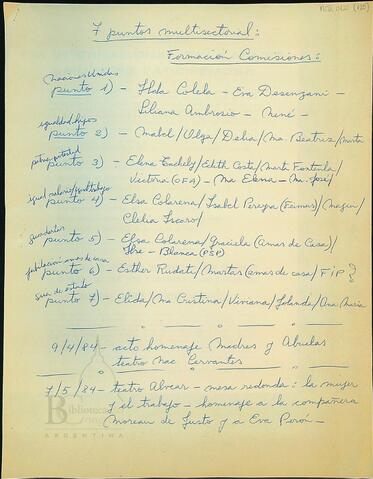 7 puntos multisectorial:
Formación Comisiones:
Naciones Unidas
punto 1) - Ilda Colela - Eva Desenzani -
Liliana Ambrosio - Nené -
igualdad hijos
punto 2) - Mabel/Olga/Delia/Ma. Beatriz/Marta
patria potestad
punto 3) - Elena Tchalidy/Edith Costa/Marta Fontenla/
Victoria (OFA) - Ma Elena - Ma. José/
igual salario/igual trabajo
punto 4) - Elsa Colarena/Isabel Pereyra (Feimuj)/
Clelia Iscaro/
guarderías
punto 5) - Elsa Colarena/Graciela (Amas de Casa)/
- Blanca (PSP)
jubilación amas de casa
punto 6) - Esther Rudat/Martas (amas de casa/FIP)
sec. de estado
punto 7) - Elida/Ma Cristina/Viviana/Iolanda/Ana María
9/4/84 - acto homenaje Madres y Abuelas
teatro Nac Cervantes
7/5/84 - teatro Alvear - mesa redonda: la mujer
y el trabajo - homenaje a la compañera
Moreau de Justo y a Eva Perón -
Biblioteca
ARGENTINA